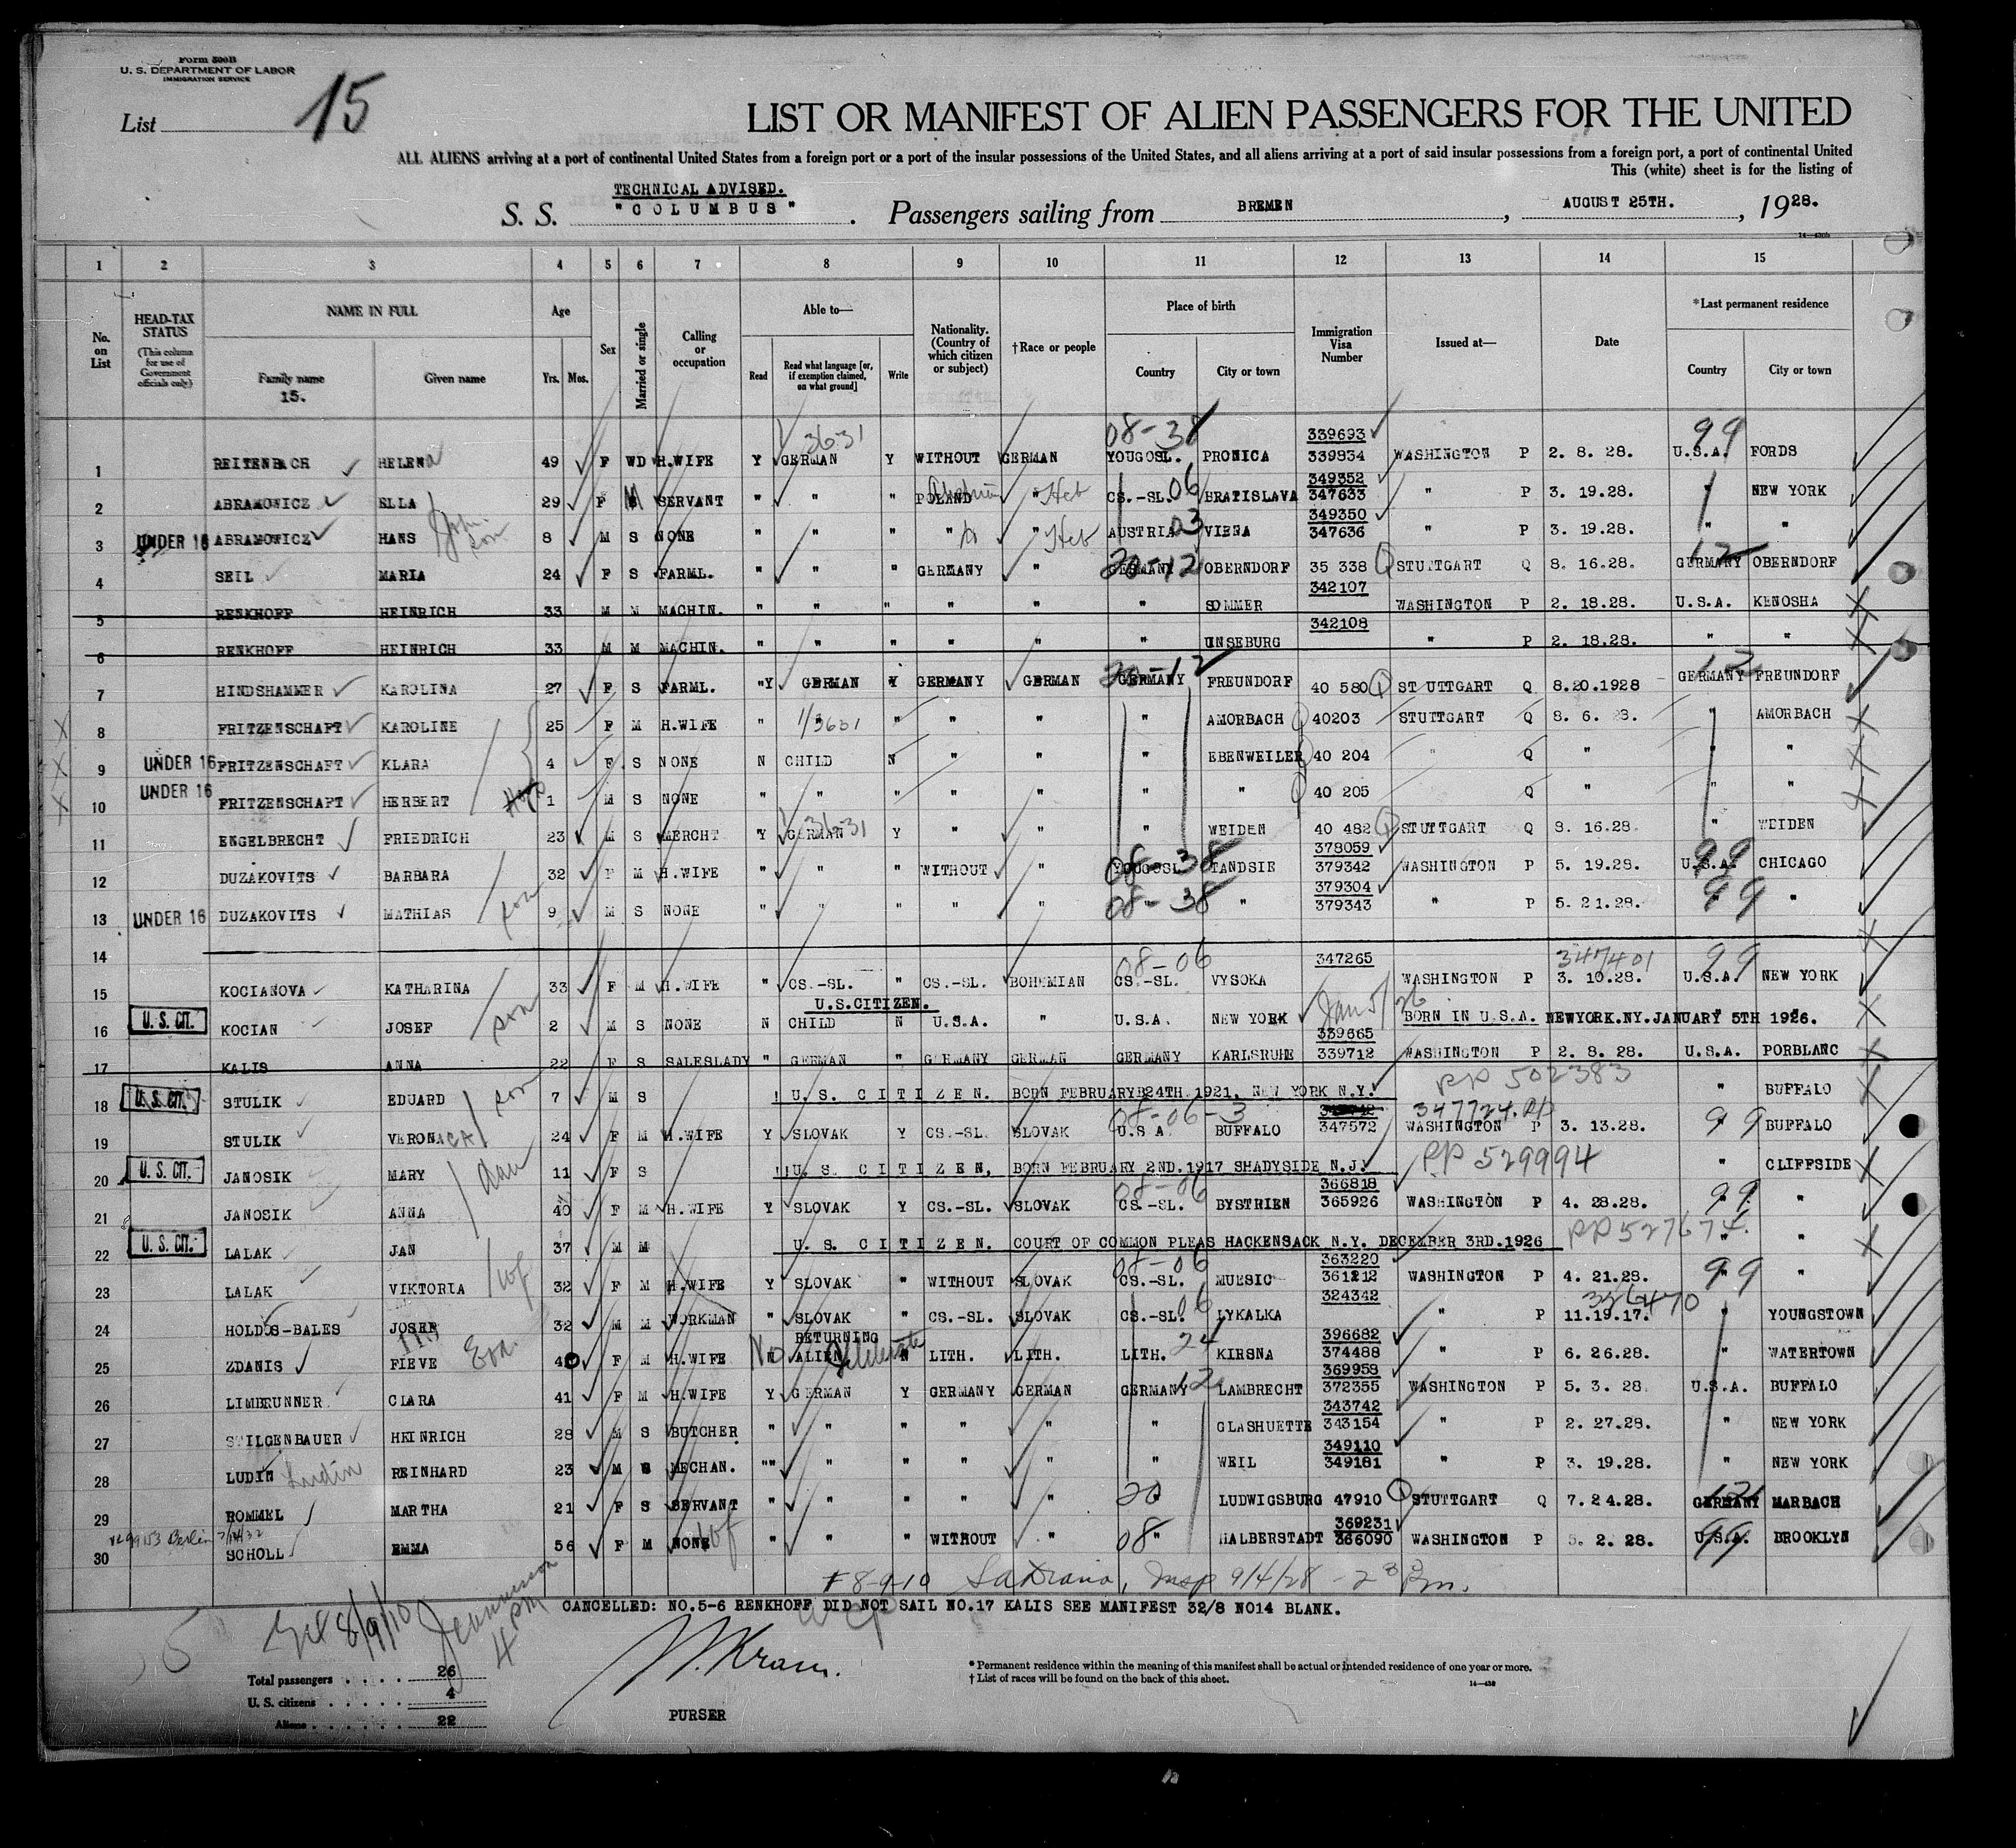 Form 500B
U. S. DEPARTMENT OF LABOR
IMMIGRATION SERVICE
List 15
LIST OR MANIFEST OF ALIEN PASSENGERS FOR THE UNITED
ALL ALIENS arriving at a port of continental United States from a foreign port or a port of the insular possessions of the United States, and all aliens arriving at a port of said insular possessions from a foreign port, a port of continental United
This (white) sheet is for the listing of
TECHNICAL ADVISED.
S. S. "COLUMBUS". Passengers sailing from BREMEN, AUGUST 25TH., 1928.
1 2 3 4 5 6 7 8 9 10 11 12 13 14 15
No. on List
HEAD-TAX STATUS (This column for use of Government officials only)
NAME IN FULL
Family name 15. Given name
Age Yrs. Mos.
Sex
Married or single
Calling or occupation
Able to—
Read Read what language [or, if exemption claimed, on what ground] Write
Nationality. (Country of which citizen or subject)
†Race or people
Place of birth
Country City or town
Immigration Visa Number
Issued at—
Date
*Last permanent residence
Country City or town
08-38 339693 99
1 REITENBACH HELENA 49 F WD H.WIFE Y GERMAN Y WITHOUT GERMAN YOUGOSL. PRONICA 339834 WASHINGTON P 2. 8. 28. U.S.A. FORDS
349352
2 ABRAMOWICZ ELLA 29 F M SERVANT " " " POLAND " Heb CS.-SL. 06 BRATISLAVA 347633 " P 3. 19.28. NEW YORK
349350
3 UNDER 16 ABRAMOWICZ HANS son 8 M S NONE " " " " " Heb AUSTRIA 03 VIENA 347636 " P 3. 19.28. " "
4 SEIL MARIA 24 F S FARML. " " " GERMANY " GERMANY 20-12 OBERNDORF 35 338 STUTTGART Q 8. 16.28. GERMANY 12 OBERNDORF
342107
5 RENKHOFF HEINRICH 33 M M MACHIN. " " " " " " SOMMER WASHINGTON P 2. 18.28. U.S.A. KENOSHA
342108
6 RENKHOFF HEINRICH 33 M M MACHIN. " " " " " " UNSEBURG " P 2. 18.28. " "
7 HINDSHAMMER KAROLINA 27 F S FARML. "Y GERMAN Y GERMANY GERMAN GERMANY 20-12 FREUNDORF 40 580 STUTTGART Q 8.20.1928 GERMANY 12 FREUNDORF
8 FRITZENSCHAFT KAROLINE 25 F M H.WIFE " 3631 " " " " AMORBACH 40203 STUTTGART Q 8. 6. 28. " AMORBACH
9 UNDER 16 FRITZENSCHAFT KLARA 4 F S NONE N CHILD N " " " EBENWEILER 40 204 " Q " " "
10 UNDER 16 FRITZENSCHAFT HERBERT 1 M S NONE " " " " " " " 40 205 Q " " "
11 ENGELBRECHT FRIEDRICH 23 M S MERCHT Y GERMAN Y " " " WEIDEN 40 482 STUTTGART Q 8. 16.28. " WEIDEN
378059
12 DUZAKOVITS BARBARA 32 F M H.WIFE " " " WITHOUT " YOUGOSL. 08-38 TANDSIE 379342 WASHINGTON P 5. 19.28. U.S.A. 99 CHICAGO
379304
13 UNDER 16 DUZAKOVITS MATHIAS son 9 M S NONE " " " " " 08-38 " 379343 " P 5. 21.28. 99 "
14
08-06 347265 347401 99
15 KOCIANOVA KATHARINA 33 F M H.WIFE " CS.-SL. " CS.-SL. BOHEMIAN CS.-SL. VYSOKA WASHINGTON P 3. 10.28. U.S.A. NEW YORK
U.S.CITIZEN. Jan 5/26
16 U. S. CIT. KOCIAN JOSEF son 2 M S NONE N CHILD N U.S.A. " U.S.A. NEW YORK BORN IN U.S.A. NEWYORK.NY.JANUARY 5TH 1926.
339665
17 KALIS ANNA 22 F S SALESLADY " GERMAN " GERMANY GERMAN GERMANY KARLSRUHE 339712 WASHINGTON P 2. 8. 28. U.S.A. PORBLANC
PP 502383
18 U. S. CIT. STULIK EDUARD son 7 M S U. S. CITIZEN. BORN FEBRUARY 24TH.1921. NEW YORK N.Y. " BUFFALO
08-06-3 347724
19 STULIK VERONACA 24 F M H.WIFE Y SLOVAK Y CS.-SL. SLOVAK U.S.A. BUFFALO 347572 WASHINGTON P 3. 13.28. 99 BUFFALO
20 U. S. CIT. JANOSIK MARY dau 11 F S U. S. CITIZEN, BORN FEBRUARY 2ND.1917 SHADYSIDE N.J. PP 529994 " CLIFFSIDE
08-06 366818
21 JANOSIK ANNA 40 F M H.WIFE Y SLOVAK Y CS.-SL. SLOVAK CS.-SL. BYSTRIEN 365926 WASHINGTON P 4. 28.28. 99 "
22 U. S. CIT. LALAK JAN 37 M M U. S. CITIZEN. COURT OF COMMON PLEAS HACKENSACK N.Y. DECEMBER 3RD.1926 PP 527674 " "
08-06 363220
23 LALAK VIKTORIA wf 32 F M H.WIFE Y SLOVAK " WITHOUT SLOVAK CS.-SL. MUESIC 361212 WASHINGTON P 4. 21.28. 99 "
324342
24 HOLDOS-BALES JOSEF 32 M M WORKMAN " SLOVAK " CS.-SL. SLOVAK CS.-SL. 06 LYKALKA " P 11.19.17. " YOUNGSTOWN
RETURNING 396682
25 ZDANIS FIEVE Eva 40 F M H.WIFE No N ALIEN N LITH. LITH. LITH. 24 KIRSNA 374488 " P 6. 26.28. " WATERTOWN
369958
26 LIMBRUNNER CLARA 41 F M H.WIFE Y GERMAN Y GERMANY GERMAN GERMANY 12 LAMBRECHT 372355 WASHINGTON P 5. 3. 28. U.S.A. BUFFALO
343742
27 STILGENBAUER HEINRICH 28 M S BUTCHER " " " " " " GLASHUETTE 343154 " P 2. 27.28. NEW YORK
349110
28 LUDIN Ludin REINHARD 23 M S MECHAN. "" " " " " " WEIL 349181 " P 3. 19.28. NEW YORK
29 ROMMEL MARTHA 21 F S SERVANT " " " " " 20 LUDWIGSBURG 47910 STUTTGART Q 7.24.28. GERMANY 12 MARBACH
369231
30 SCHOLL EMMA 56 F M NONE wf " " " WITHOUT " 08 " HALBERSTADT 366090 WASHINGTON P 5. 2. 28. U.S.A. 99 BROOKLYN
Insp 9/4/28
CANCELLED: NO.5-6 RENKHOFF DID NOT SAIL NO.17 KALIS SEE MANIFEST 32/8 NO14 BLANK.
8/9/10 4 PM
Total passengers . . . . 26
U. S. citizens . . . . . 4
Aliens . . . . . . 22
PURSER
* Permanent residence within the meaning of this manifest shall be actual or intended residence of one year or more.
† List of races will be found on the back of this sheet.